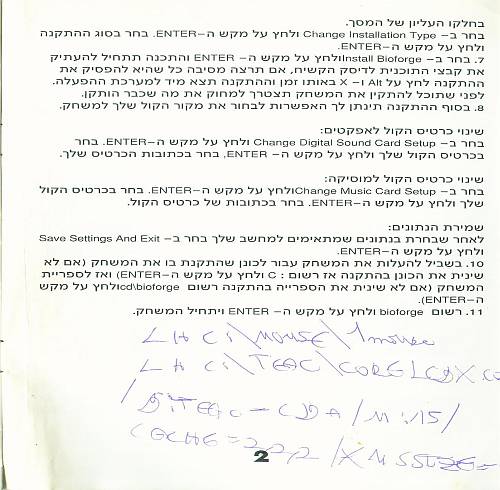 בחלקו העליון של המסך.
בחר ב- Change Installation Type ולחץ על מקש ה-ENTER. בחר בסוג ההתקנה
ולחץ על מקש ה-ENTER.
7. בחר ב- Install Bioforgeולחץ על מקש ה- ENTER והתכנה תתחיל להעתיק
את קבצי התוכנית לדיסק הקשיח, אם תרצה מסיבה כל שהיא להפסיק את
ההתקנה לחץ על Alt ו- X באותו זמן וההתקנה תצא מיד למערכת ההפעלה.
לפני שתוכל להתקין את המשחק תצטרך למחוק את מה שכבר הותקן.
8. בסוף ההתקנה תינתן לך האפשרות לבחור את מקור הקול שלך למשחק.
שינוי כרטיס הקול לאפקטים:
בחר ב- Change Digital Sound Card Setup ולחץ על מקש ה-ENTER. בחר
בכרטיס הקול שלך ולחץ על מקש ה- ENTER, בחר בכתובות הכרטיס שלך.
שינוי כרטיס הקול למוסיקה:
בחר ב- Change Music Card Setupולחץ על מקש ה-ENTER. בחר בכרטיס הקול
שלך ולחץ על מקש ה-ENTER. בחר בכתובות של כרטיס הקול.
שמירת הנתונים:
לאחר שבחרת בנתונים שמתאימים למחשב שלך בחר ב- Save Settings And Exit
ולחץ על מקש ה-ENTER.
10. בשביל להעלות את המשחק עבור לכונן שהתקנת בו את המשחק (אם לא
שינית את הכונן בהתקנה אז רשום : C ולחץ על מקש ה-ENTER) ואז לספריית
המשחק (אם לא שינית את הספרייה בהתקנה רשום cd\bioforgeולחץ על מקש
ה-ENTER).
11. רשום bioforge ולחץ על מקש ה- ENTER ויתחיל המשחק.
LH C:\mouse\1mouse
LH C:\TEAC\
/D:TEAC-CDA /M:15/
2